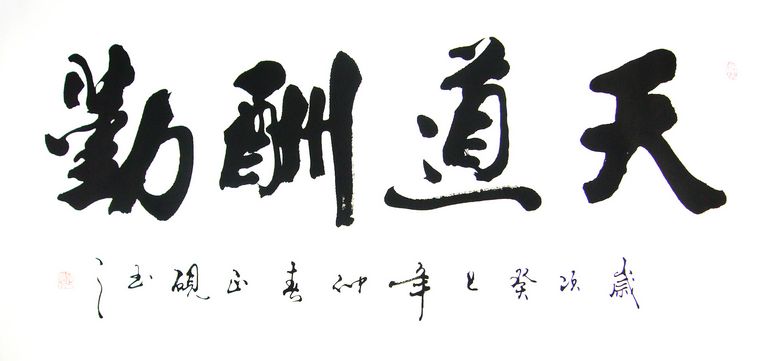 天道酬勤
歲次癸巳年仲春正硯